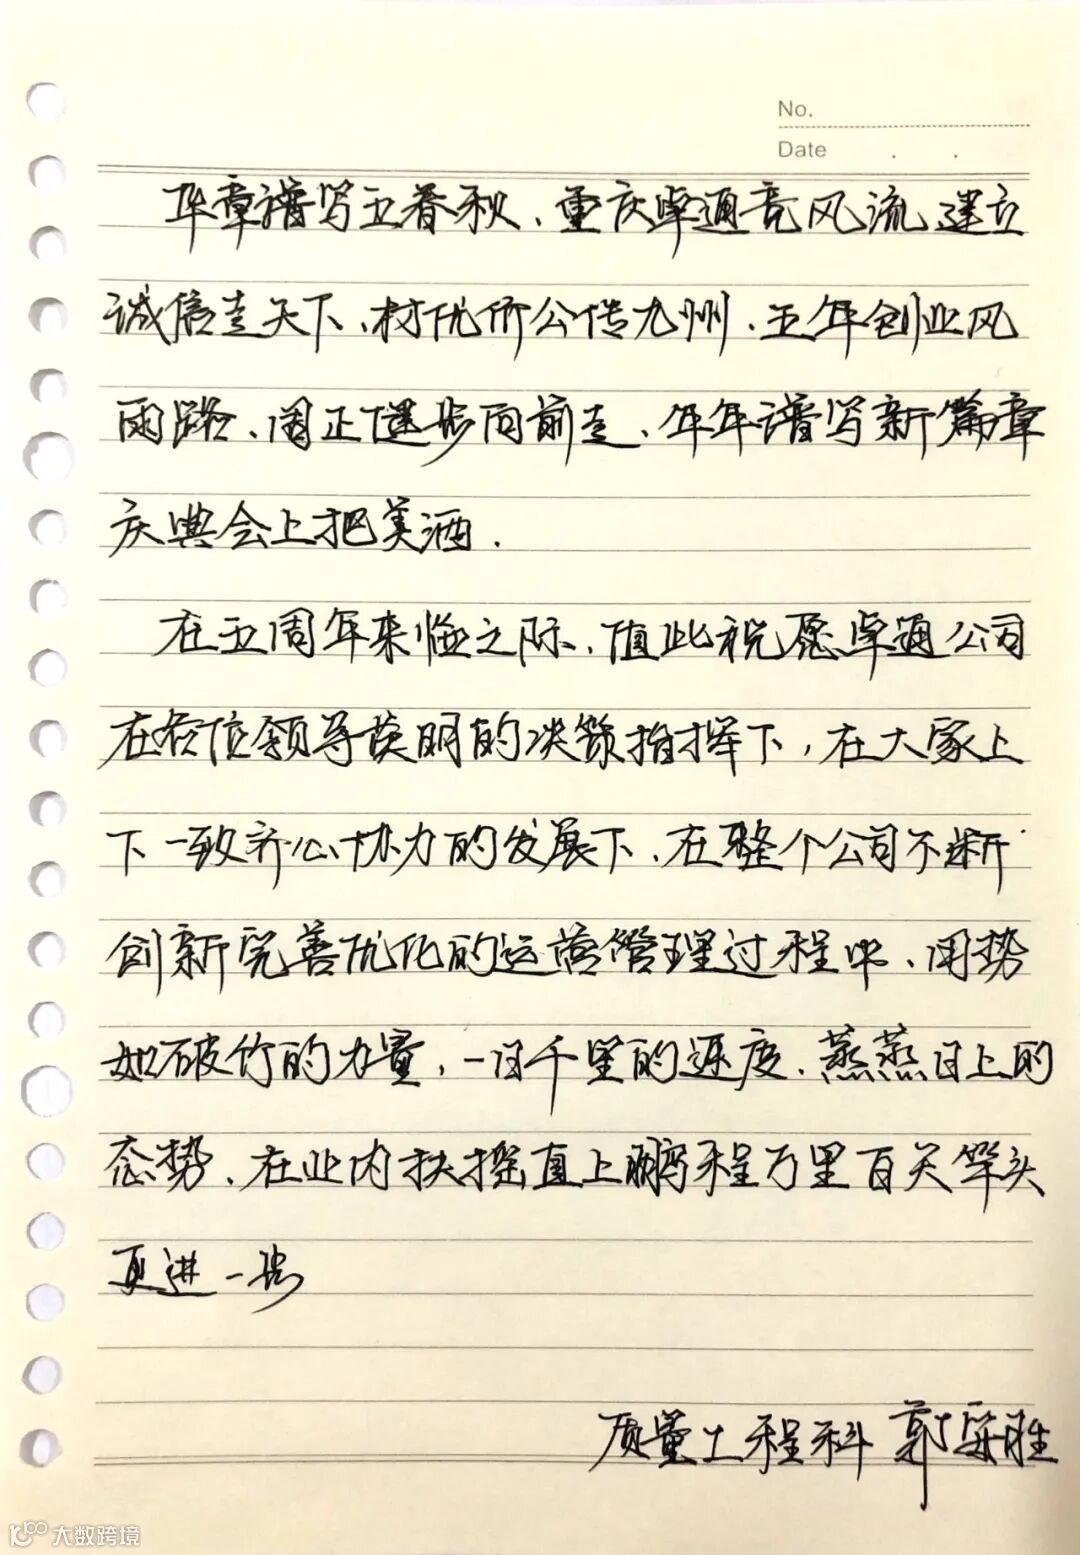 No.
Date . .
华章谱写五春秋、重庆卓通竞风流建立
诚信走天下、材优价公传九州.五年创业风
雨路、阔正大逐步向前走、年年谱写新篇章
庆典会上把美酒.
在五周年来临之际、值此祝愿卓通公司
在各位领导英明的决策指挥下,在大家上
下一致齐心协力的发展下、在整个公司不断
创新完善优化的运营管理过程中、用势
如破竹的力量,一日千里的速度.蒸蒸日上的
态势、在业内扶摇直上鹏程万里百尺竿头
更进一步
质量工程科 郭 胜
大数跨境